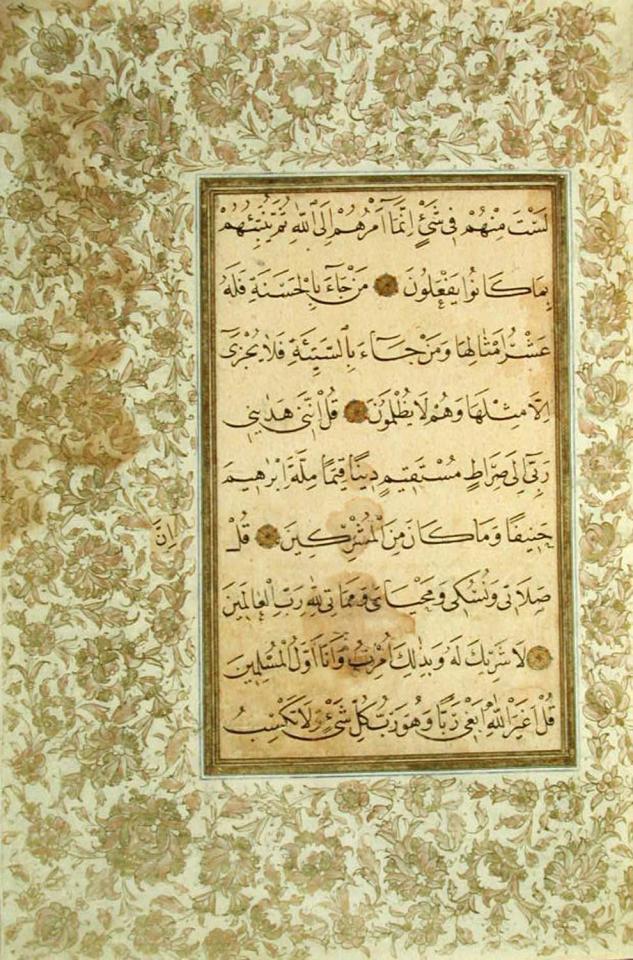 لَسْتَ مِنْهُمْ فِي شَيْءٍ اِنَّمَٓا اَمْرُهُمْ اِلَى اللّٰهِ ثُمَّ يُنَبِّئُهُمْ
بِمَا كَانُوا يَفْعَلُونَ مَنْ جَٓاءَ بِالْحَسَنَةِ فَلَهُ
عَشْرُ اَمْثَالِهَا وَمَنْ جَٓاءَ بِالسَّيِّئَةِ فَلَا يُجْزٰٓى
اِلَّا مِثْلَهَا وَهُمْ لَا يُظْلَمُونَ قُلْ اِنَّنِي هَدٰينِي
رَبِّٓي اِلٰى صِرَاطٍ مُسْتَقِيمٍ دِينًا قِيَمًا مِلَّةَ اِبْرٰهِيمَ
حَنِيفًا وَمَا كَانَ مِنَ الْمُشْرِكِينَ قُلْ
اِنَّ
صَلَاتِي وَنُسُكِي وَمَحْيَايَ وَمَمَاتِي لِلّٰهِ رَبِّ الْعَالَمِينَ
لَا شَرِيكَ لَهُ وَبِذٰلِكَ اُمِرْتُ وَاَنَا اَوَّلُ الْمُسْلِمِينَ
قُلْ اَغَيْرَ اللّٰهِ اَبْغِي رَبًّا وَهُوَ رَبُّ كُلِّ شَيْءٍ وَلَا تَكْسِبُ